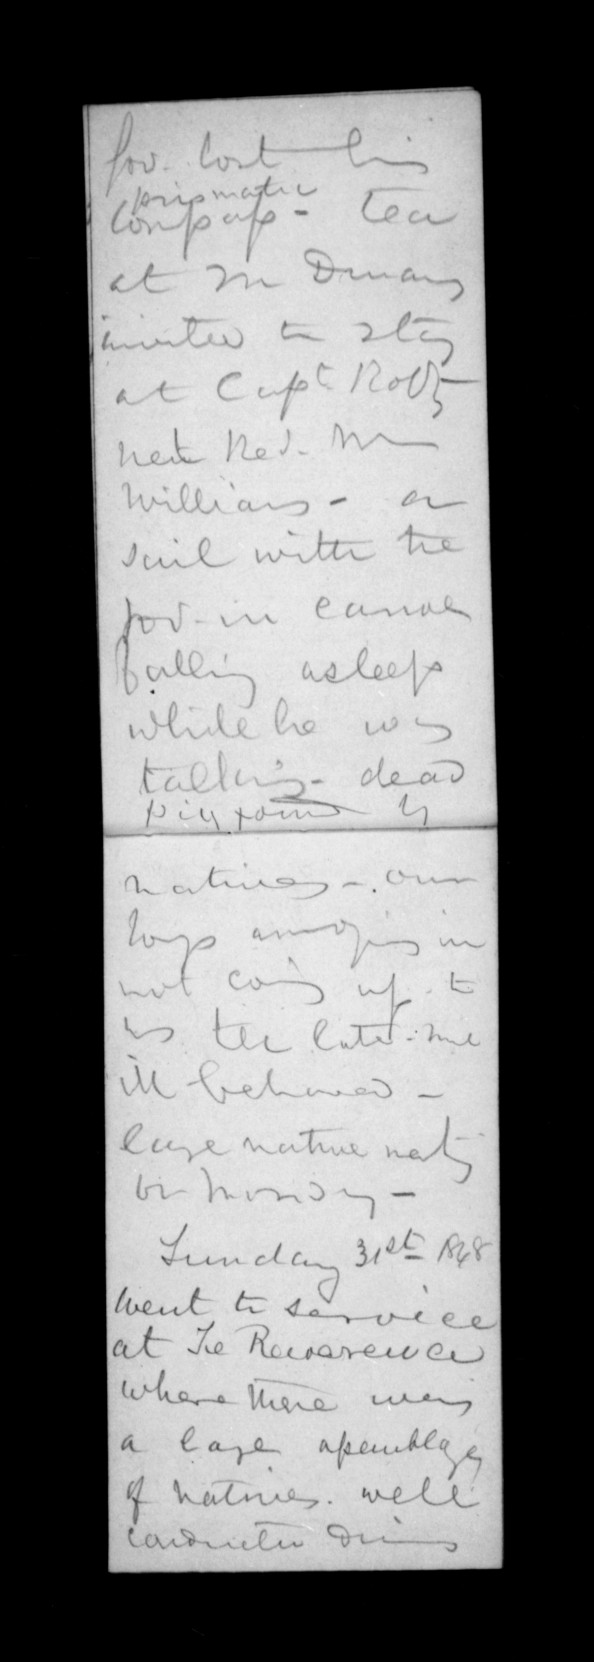 Gov. lost his
prismatic
compass - tea
at Mr
invited to stay
at Capt.
next Rev. Mr
Williams - on
sail with the
Gov. in canoe
falling asleep
while he was
talking - dead
pig found by
natives - our
boys annoying in
not coming up to
us till late - and
ill behaved -
large native meeting
on Monday -
Sunday 31st 1848
Went to service
at Te Rewarewa
where there was
a large assemblage
of natives. well
conducted during